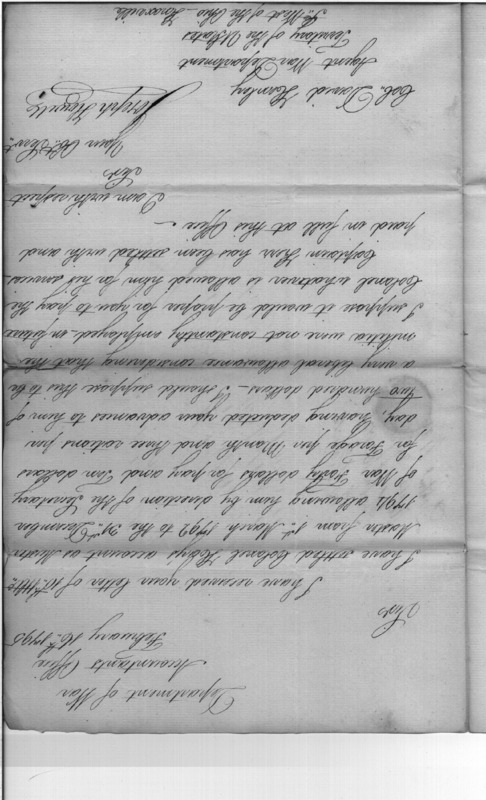 Department of War
Accountants Office
February 16th 1795
Sir
I have received your letter of 10th Ultio
I have settled Colonel Kelly's account as Muster
Master from 1st March 1792 to the 31st December
1794 allowing him by direction of the Secretary
of War Forty dollars for pay and Ten dollars
for Forage per Month and three rations per
day, having deducted your advances to him of
two hundred dollars. I should suppose this to be
a very liberal allowance considering that the
militia were not constantly employed in future
I suppose it would be proper for you to pay the
Colonel whatever is allowed him for his services
Captain Kerr has been settled with and
paid in full at this Office
I am with respect
Sir
Your Ob. Servt.
Joseph Howell
Col. David Henley
Agent War Department
Territory of the UStates
So. West of the Ohio Knoxville